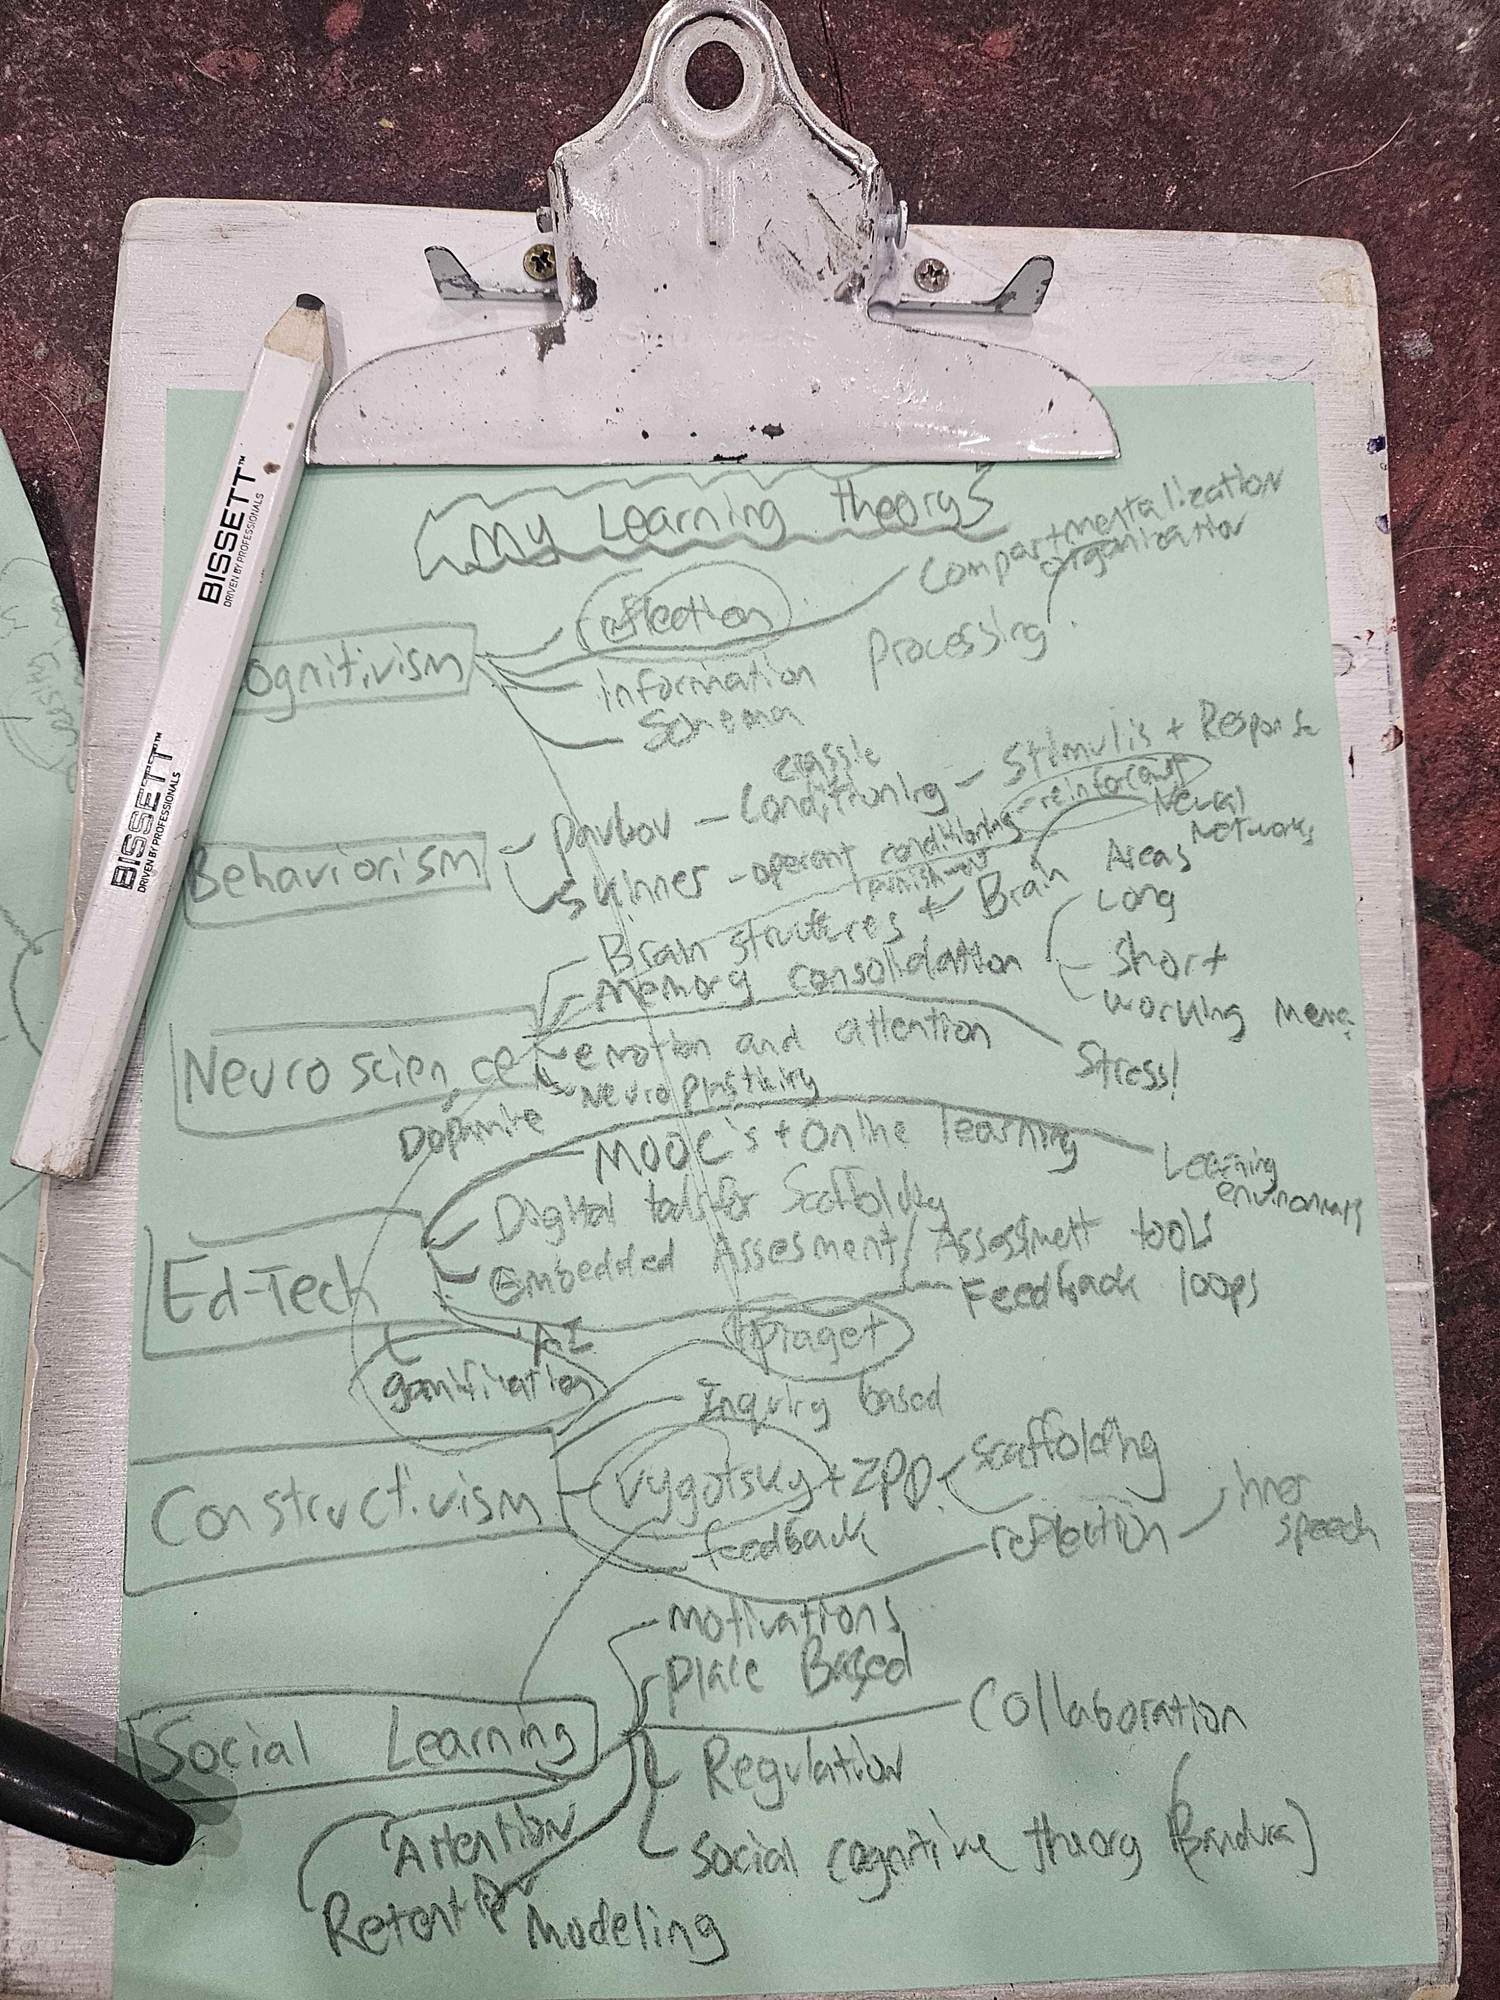 My Learning theorys
reflection
Compartmentalization
organization
ognitivism
information processing
Schema
classic
Pavlov - Conditioning - Stimulis + Response
Behaviorism
Skinner - operent conditioning - reinforcement
punishment
Neural
Networks
Brain structures + Brain Areas
Memory consolidation
Long
Short
working mem
Neuroscience
emotion and attention
Stress!
Neuroplasticity
Dopamine
MOOC's + Online learning
Learning
environments
Digital tools for Scaffolding
Embedded Assesment / Assessment tools
Ed-Tech
Feedback loops
AI
Piaget
gamification
Inquiry based
Constructivism
Vygotsky + ZPD
Scaffolding
reflection
inner
speech
feedback
motivations
Place Based
Collaboration
Social Learning
Regulation
Social cognitive theory (Bandura)
Attention
Retention
Modeling
BISSETT™
DRIVEN BY PROFESSIONALS
BISSETT™
DRIVEN BY PROFESSIONALS